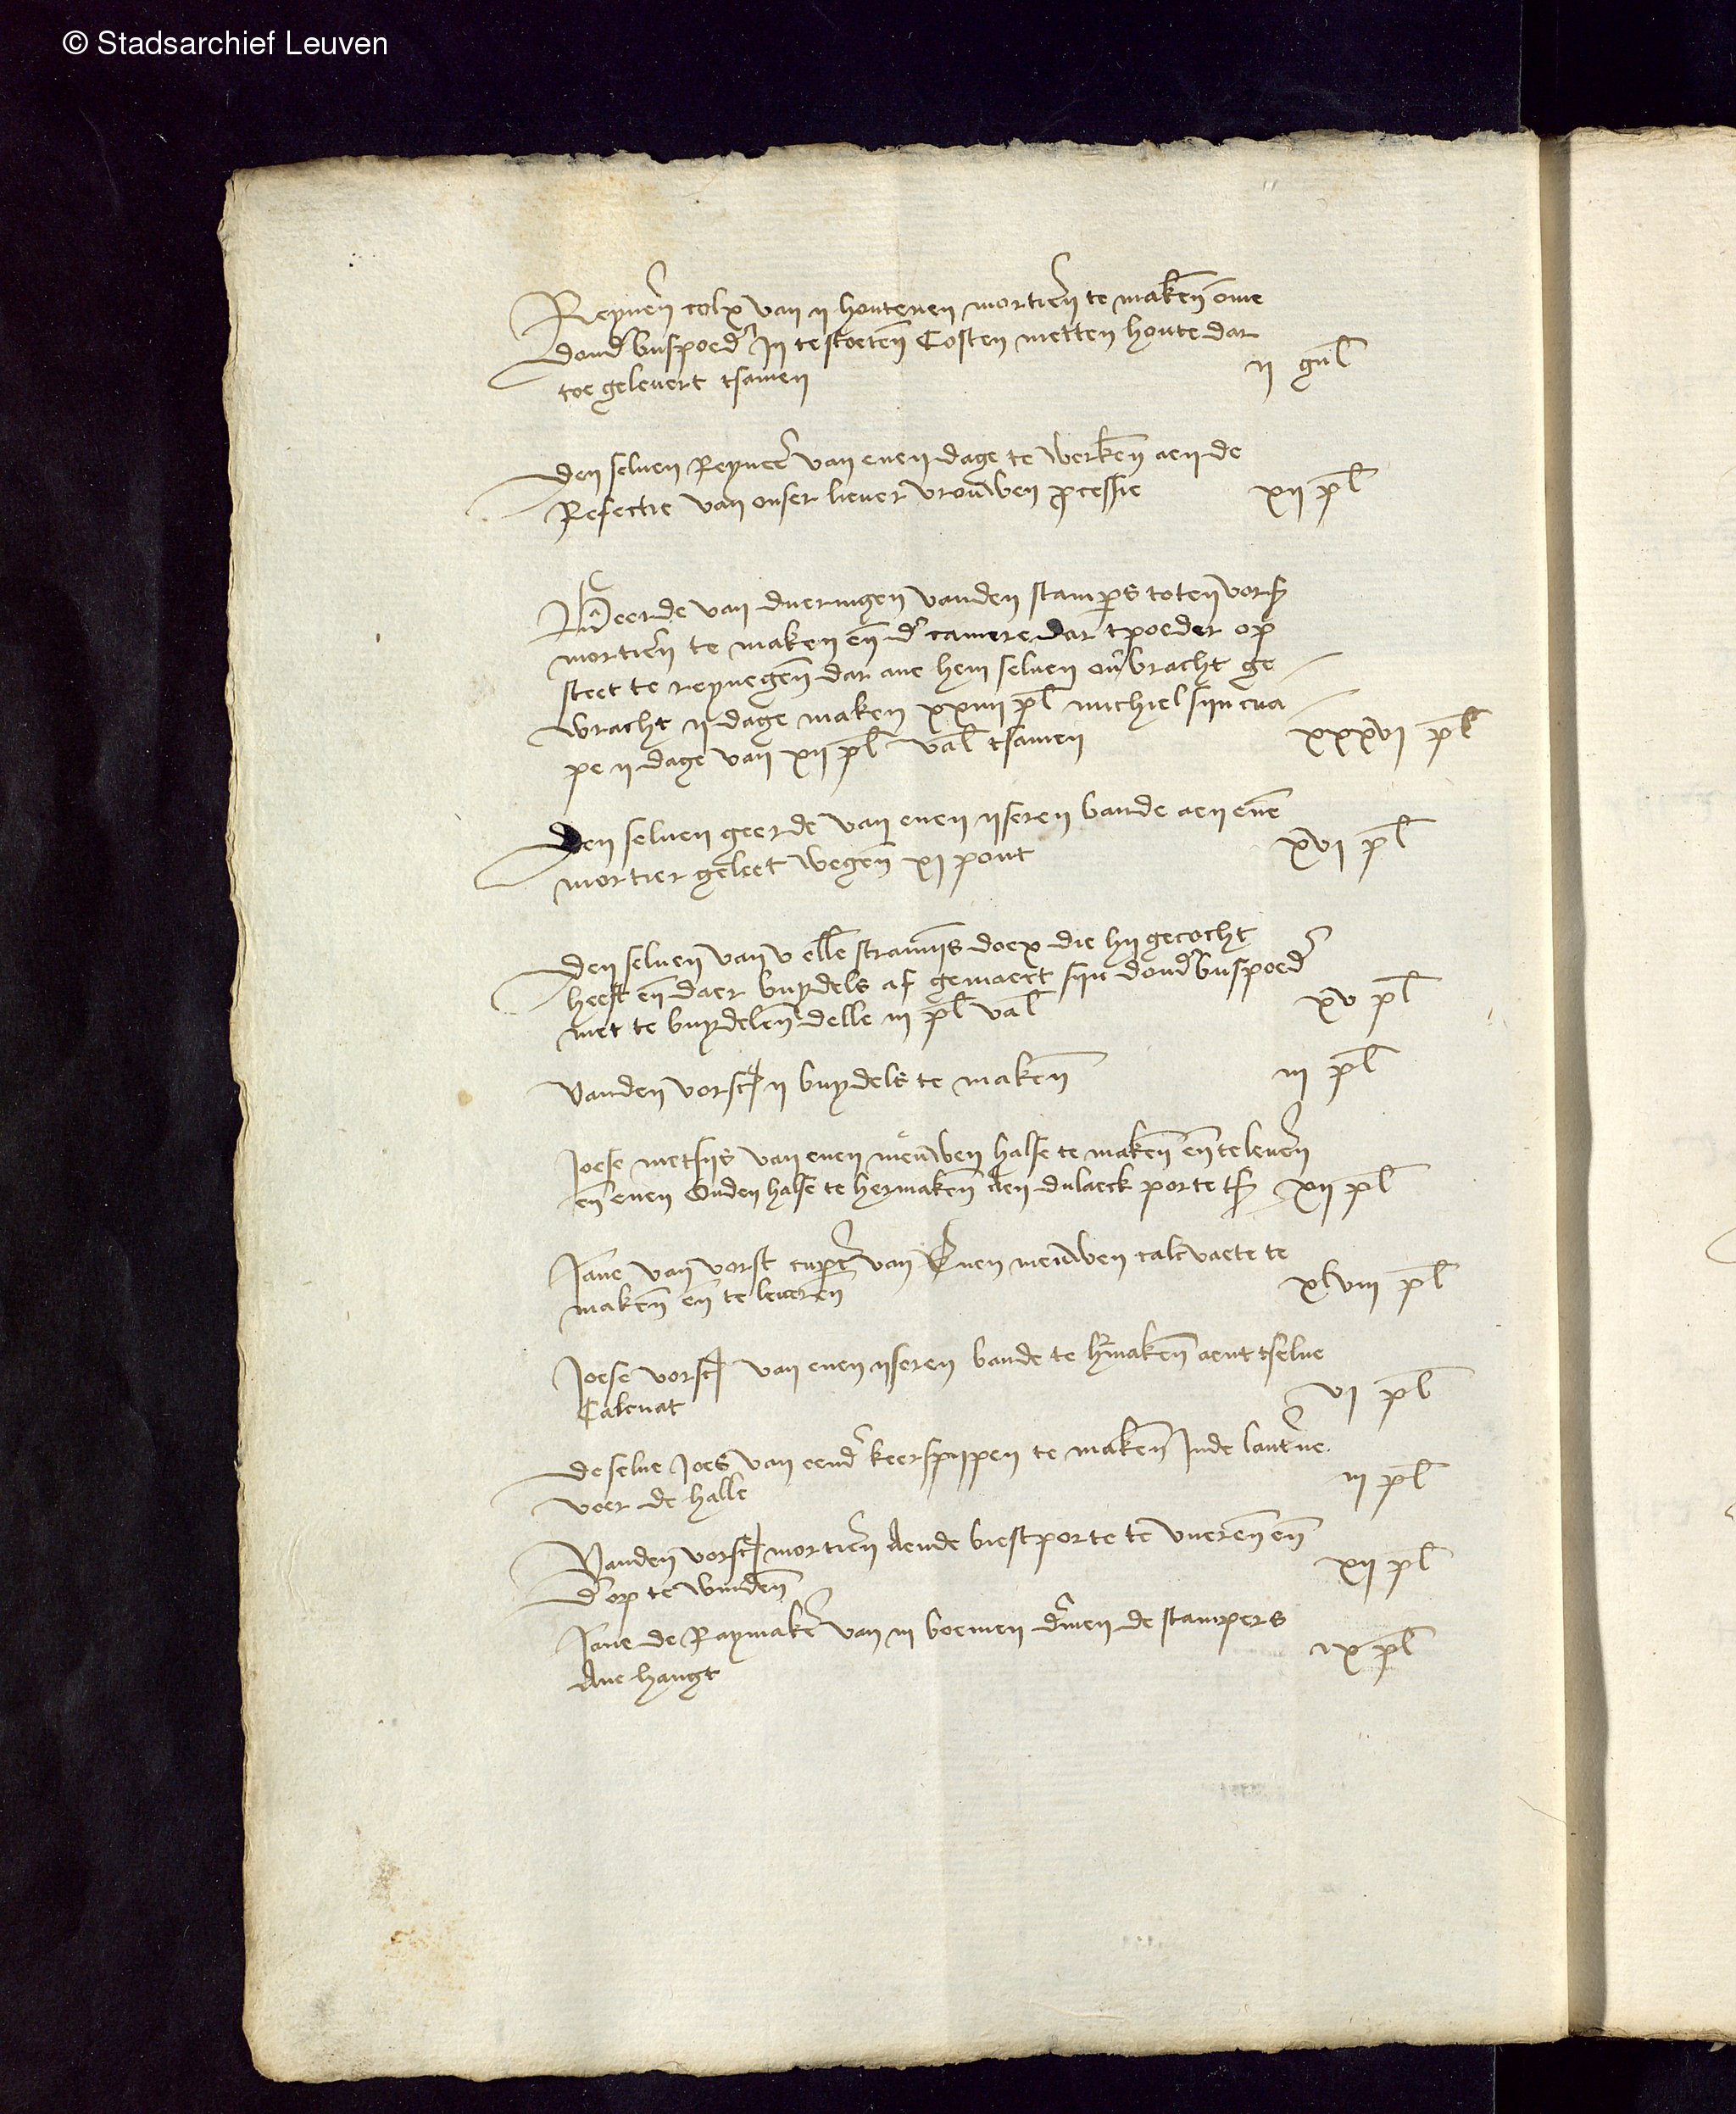 © Stadsarchief Leuven
Reyneren colx van ij houtenen mortieren te maken ome
dond' buspoed' in te stoeten Costen metten houte dar
toe gelevert tsamen ij gul
den selven Reyner van enen dage te werken aen de
Refectie van onser liever vrouwen processie xij pl
Geerde van dueringen vanden stampers toten vors
mortieren te maken en d' camere dar tpoeder op
steet te reynegen dar ane hem selven onbracht ge
wracht ij dage maken xxiiij pl michiel sijn cna
pe ij dage van xij pl val tsamen xxxvj pl
Den selven geerde van enen ijseren bande aen enen
mortier geleet wegen xj pont xvj pl
den selven van v elle stramijs doex die hij gecocht
heeft en daer buydels af gemaect sijn dond'buspoed'
met te buydelen delle iij pl val xv pl
Vanden vorsc ij buydels te maken iij pl
Joese metsijs van enen nieuwen halse te maken en te leveren
en enen Ouden halse te hermaken Aen dulaeck porte ts xij pl
Jane van vorst cuper van Enen nieuwen calcvaete te
maken en te leveren xlviij pl
Joese vorsc van enen ijseren bande te h'maken aent tselve
Calcvat vj pl
de selve Joes van eend' keerspijpen te maken Inde lant'ne
voer de halle iij pl
Vanden vorsc mortieren Aende biestporte te vueren en
d'op te winden xij pl
Jane de Raymaker van iij boemen d'men de stampers
Ane hangt ix pl